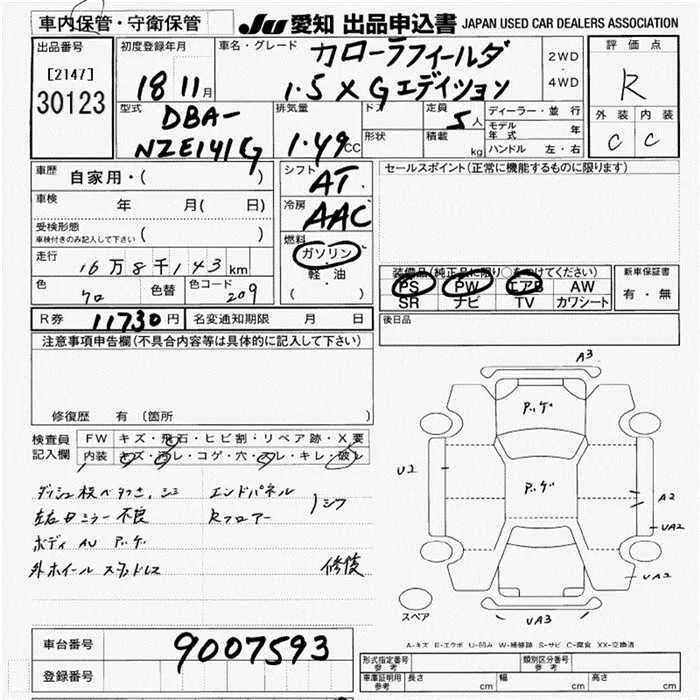 車内保管・守衛保管
JU 愛知 出品申込書 JAPAN USED CAR DEALERS ASSOCIATION
出品番号
[2147]
30123
初度登録年月
18 11月
車名・グレード
カローラフィールダ
1.5 X Gエディション
2WD
4WD
評価点
R
型式
DBA-
NZE141G
排気量
1.49 CC
ドア
形状
定員 5人
積載 kg
ディーラー・並行
モデル年式 年
ハンドル 左・右
外装 内装
C C
車歴 自家用・( )
車検 年 月( 日)
受検形態
車検付きのみ記入して下さい ( )
走行 16万8千143km
色 色替 色コード 209
シフト AT
冷房 AAC
燃料
ガソリン
軽・油
( )
セールスポイント(正常に機能するものに限ります)
装備品(純正品に限り○をつけてください)
PS PW エアB AW
SR ナビ TV カワシート
新車保証書
有・無
後日品
R券 11730円 名変通知期限 月 日
注意事項申告欄(不具合内容等は具体的に記入して下さい)
修復歴 有(箇所
検査員記入欄
FW キズ・飛石・ヒビ割・リペア跡・X要
内装 キズ・汚レ・コゲ・穴・スレ・キレ・破レ
ダッシュ板ベタつき、シミ エンドパネル
左右ドミラー不良 Rフロアー
ボディ AU アッケ
外ホイール スタッドレス 修復
A3
アッケ
アッケ
U2
A2
UA2
UA2
UA3
スペア
A-キズ E-エクボ U-凹み W-補修跡 S-サビ C-腐食 XX-交換済
車台番号 9007593
登録番号
形式指定番号 参考
類別区分番号 参考
車庫証明用 参考 長さ cm 幅 cm 高さ cm